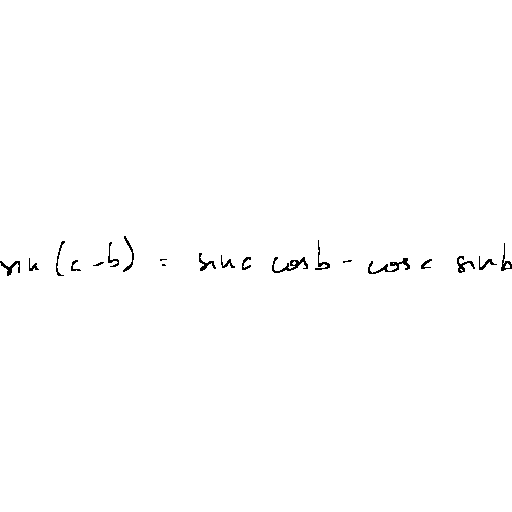 sin (c-b) = sin c cos b - cos c sin b